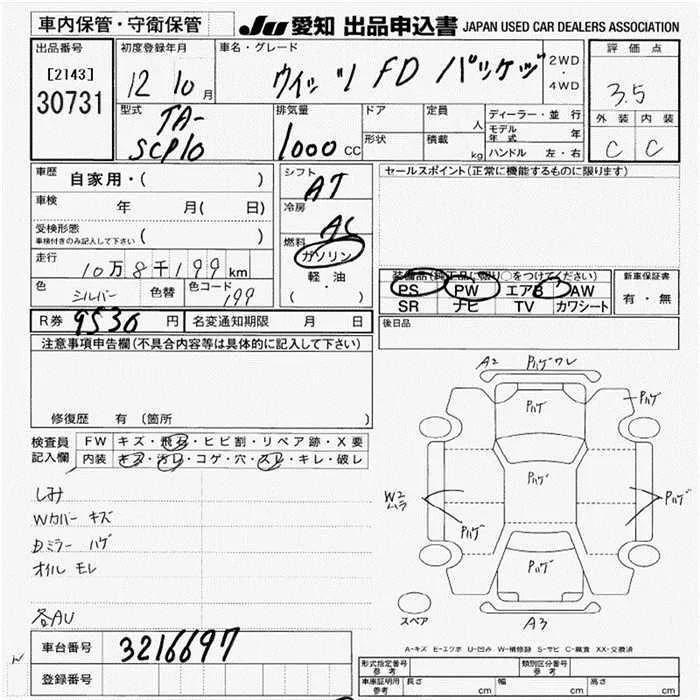 車内保管・守衛保管
JU 愛知 出品申込書 JAPAN USED CAR DEALERS ASSOCIATION
出品番号
[2143]
30731
初度登録年月
12 10月
車名・グレード
FD
2WD
・
4WD
評価点
3.5
外装 内装
C C
型式
TA-
SCP10
排気量
1000 CC
ドア
形状
定員
人
積載
kg
ディーラー・並行
モデル年式 年
ハンドル 左・右
車歴 自家用・( )
車検 年 月( 日)
受検形態
車検付きのみ記入して下さい ( )
走行
10万8千199km
色 シルバー 色替 色コード 199
シフト AT
冷房 AC
燃料
ガソリン
軽・油
( ・ )
セールスポイント(正常に機能するものに限ります)
装備品(純正品に限り○をつけてください)
PS PW エアB AW
SR ナビ TV カワシート
新車保証書
有・無
後日品
R券 9536円 名変通知期限 月 日
注意事項申告欄(不具合内容等は具体的に記入して下さい)
修復歴 有 (箇所
検査員
記入欄
FW キズ・飛石・ヒビ割・リペア跡・X要
内装 キズ・汚レ・コゲ・穴・スレ・キレ・破レ
しみ
Wカバー キズ
Dミラー ハゲ
オイル モレ
各AU
A2 Pハゲワレ
Pハゲ
Pハゲ
Pハゲ
W2
ムラ
Pハゲ
Pハゲ
Pハゲ
A3
スペア
A-キズ E-エクボ U-凹み W-補修跡 S-サビ C-腐食 XX-交換済
車台番号 3216697
登録番号
形式指定番号
参考
類別区分番号
参考
車庫証明用
参考
長さ cm 幅 cm 高さ cm